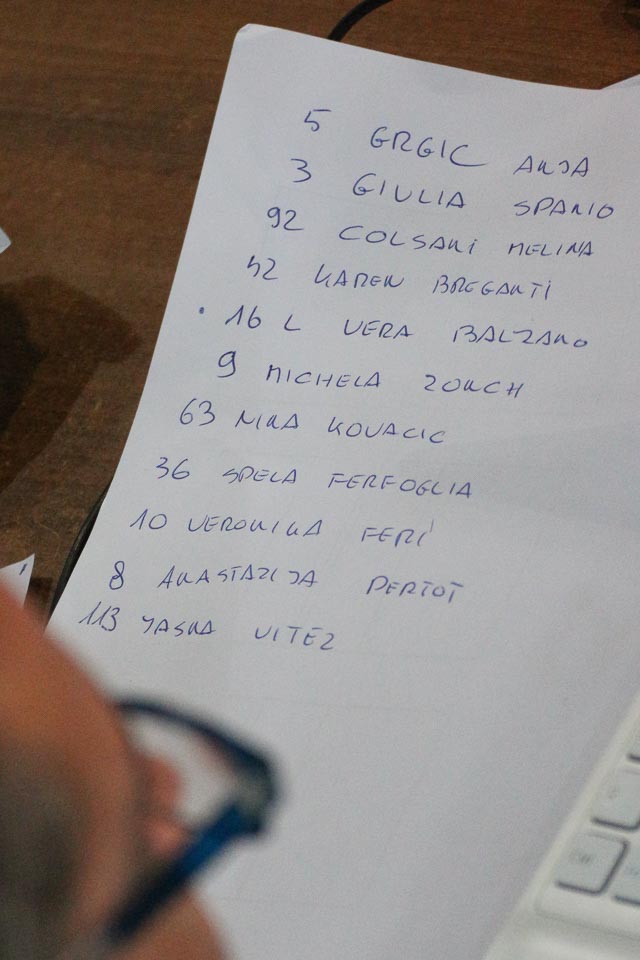 5 GRGIC ANJA
3 GIULIA SPANIO
92 COLSANI MELINA
42 KAREN BREGANTI
16 L VERA BALZANO
9 MICHELA ZONCH
63 NIKA KOVACIC
36 SPELA FERFOGLIA
10 VERONIKA FERI
8 ANASTAZIJA PERTOT
113 JASNA VITEZ